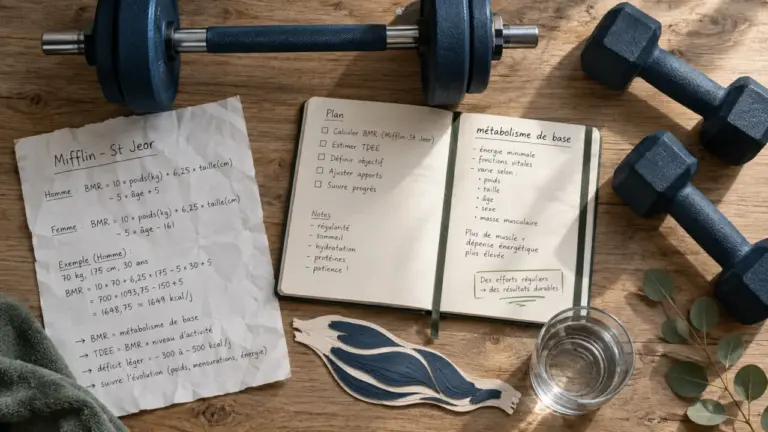 Mifflin - St Jeor
Homme BMR = 10 × poids(kg) + 6,25 × taille(cm)
- 5 × âge + 5
Femme BMR = 10 × poids(kg) + 6,25 × taille(cm)
- 5 × âge - 161
Exemple (Homme) :
70 kg, 175 cm, 30 ans
BMR = 10 × 70 + 6,25 × 175 - 5 × 30 + 5
= 700 + 1093,75 - 150 + 5
= 1648,75 ≈ 1649 kcal/j
→ BMR = métabolisme de base
→ TDEE = BMR × niveau d'activité
→ déficit léger = - 300 à - 500 kcal/j
→ suivre l'évolution (poids, mensurations, énergie)
Plan
☐ Calculer BMR (Mifflin-St Jeor)
☐ Estimer TDEE
☐ Définir objectif
☐ Ajuster apports
☐ Suivre progrès
Notes
- régularité
- sommeil
- hydratation
- protéines
- patience !
métabolisme de base
- énergie minimale
- fonctions vitales
- varie selon :
• poids
• taille
• âge
• sexe
• masse musculaire
Plus de muscle =
dépense énergétique
plus élevée
Des efforts réguliers
→ des résultats durables